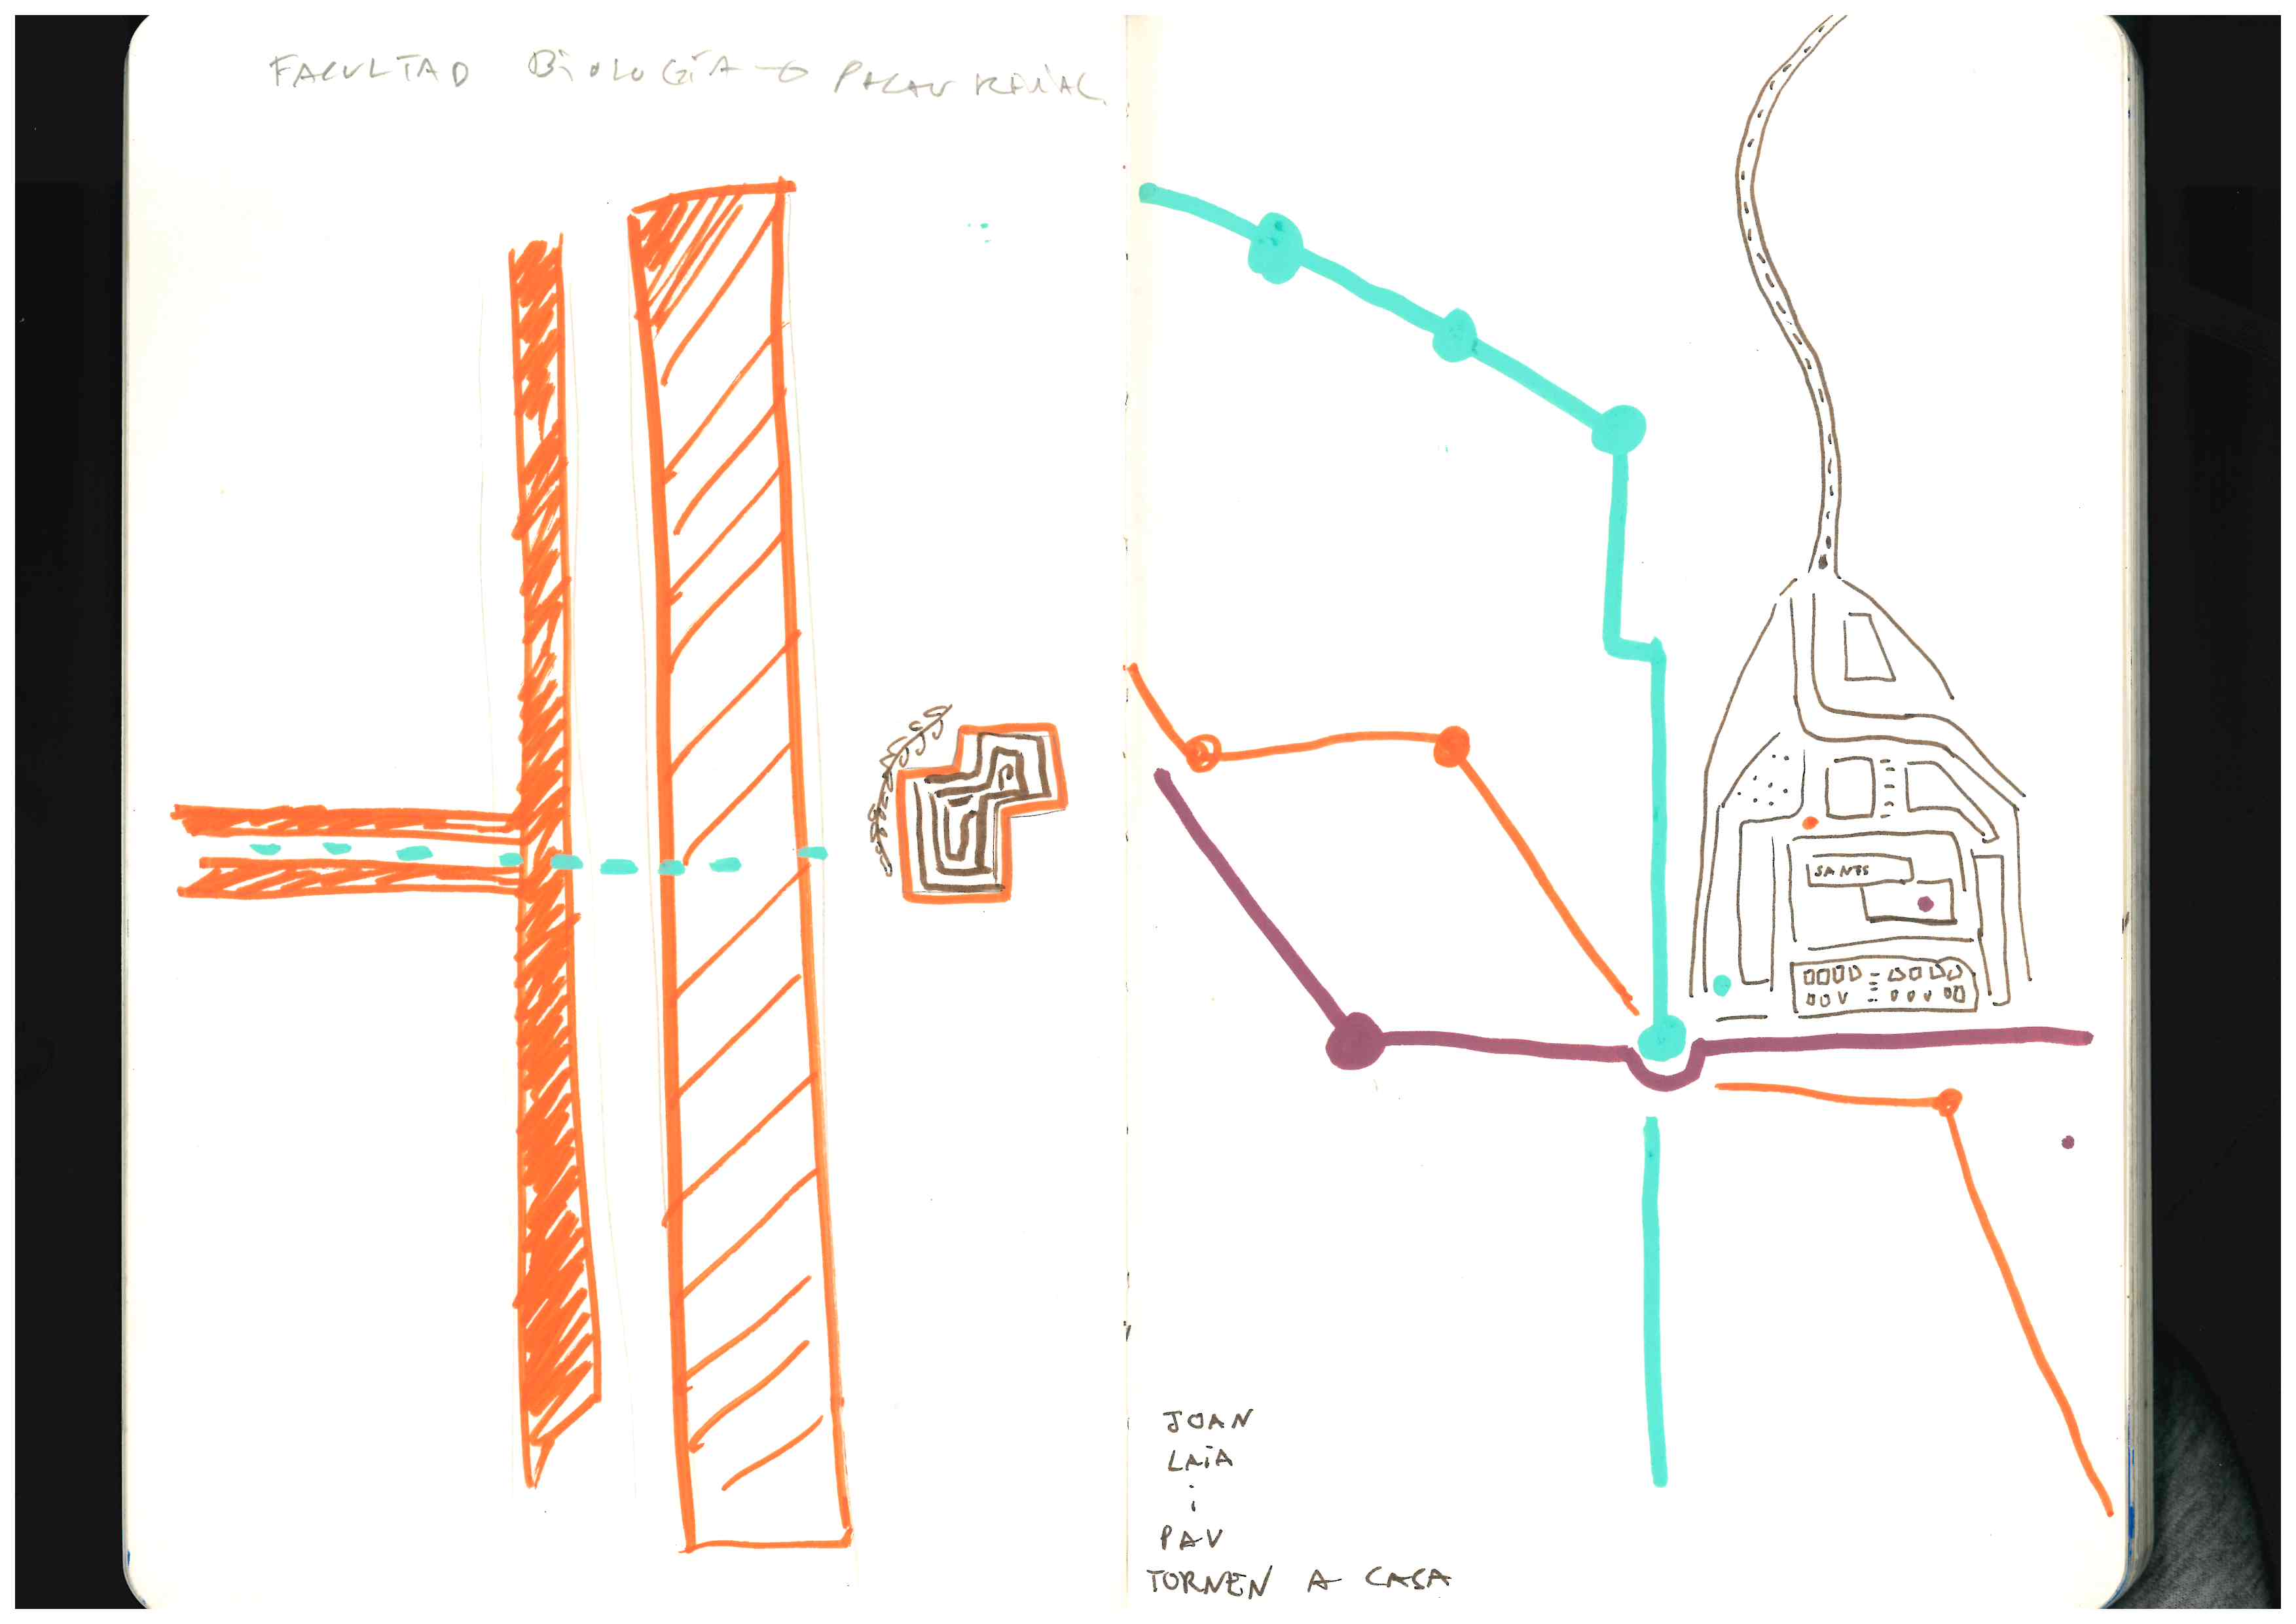 FACULTAD BIOLOGÍA → PALAU REIAL
SANTS
JOAN
LAIA
i
PAU
TORNEN A CASA